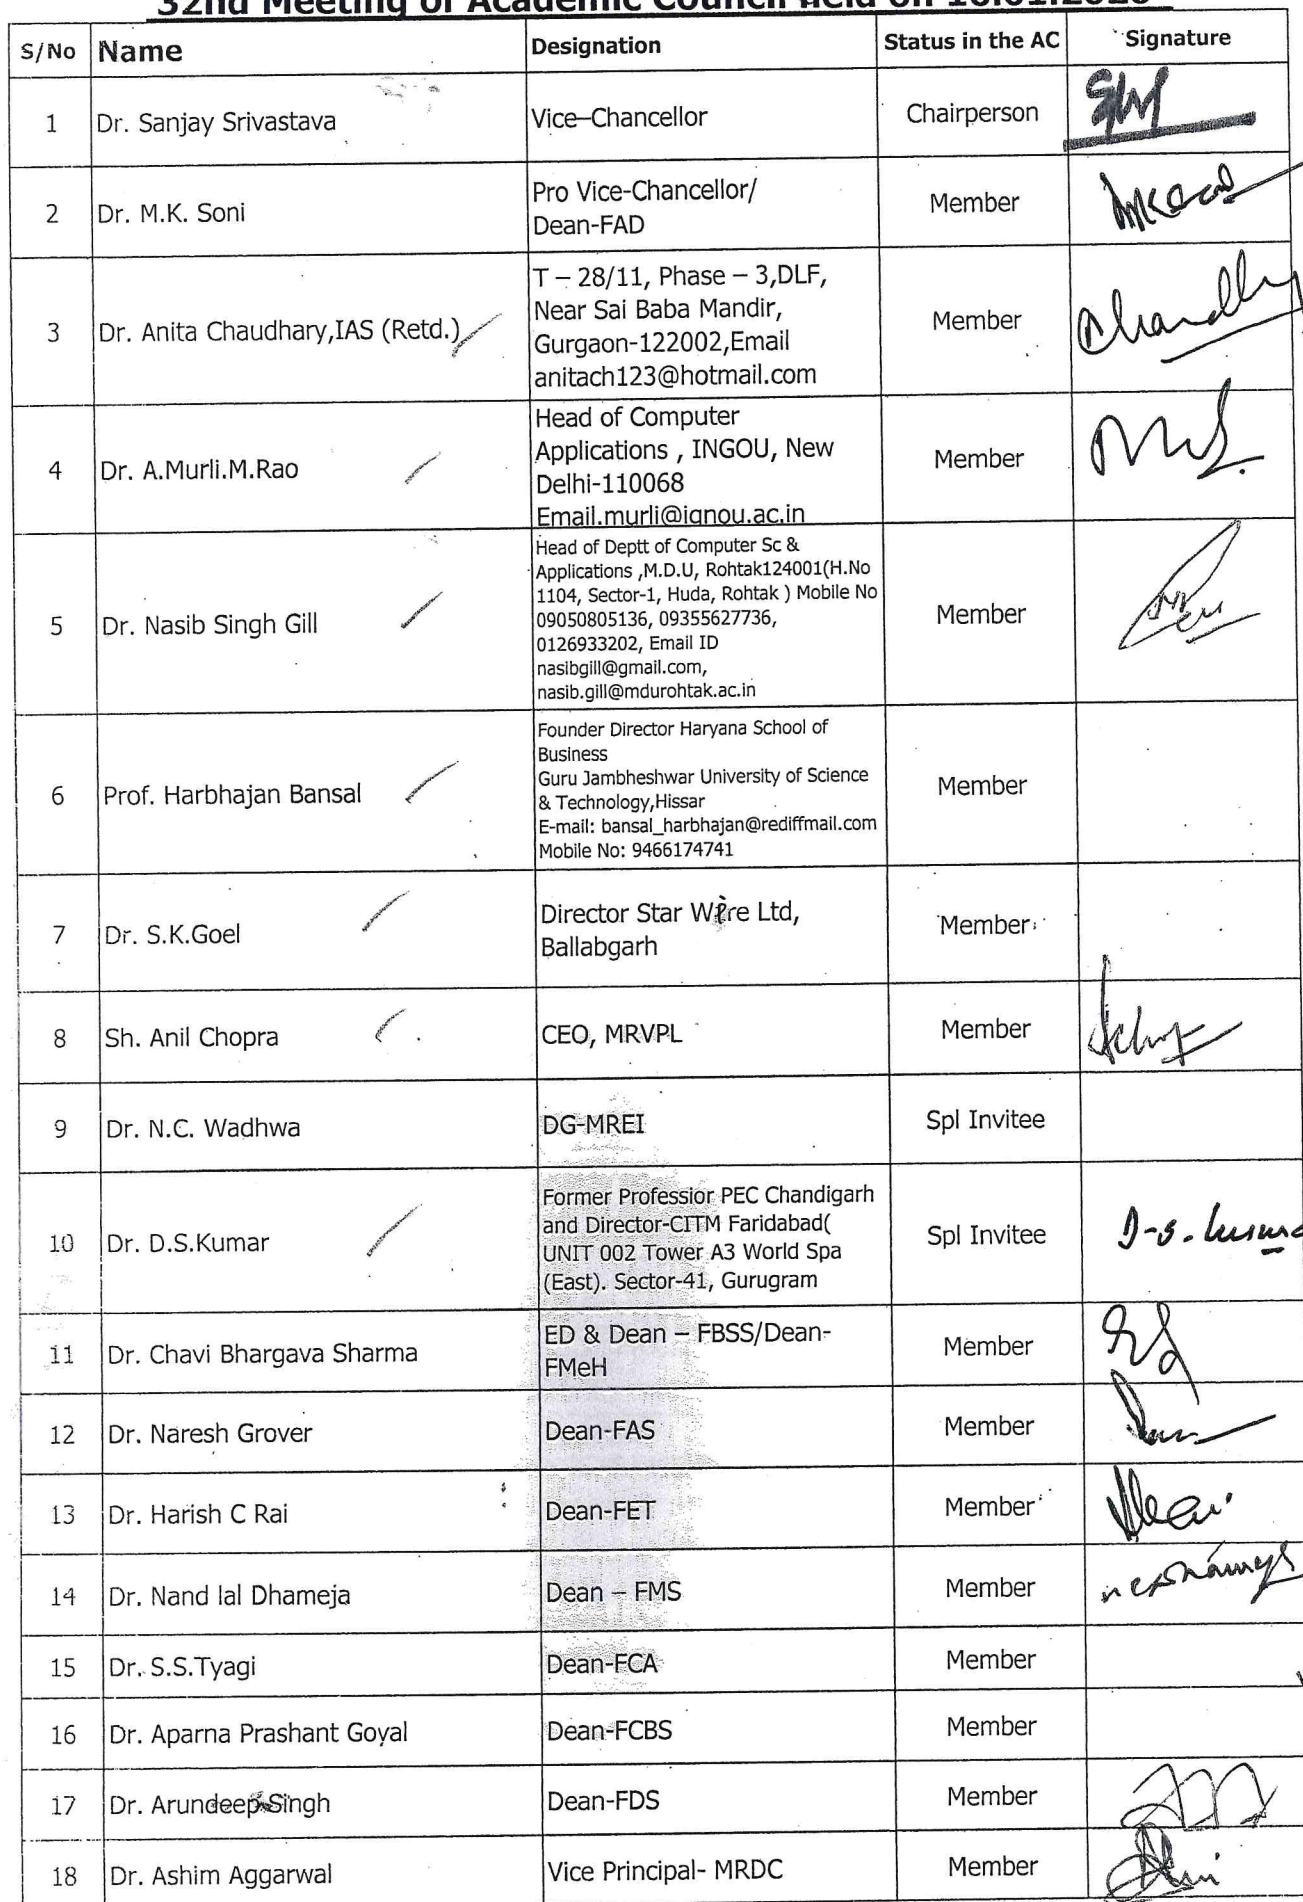 32nd Meeting of Academic Council held on 10.01.2020
S/No Name Designation Status in the AC Signature
1 Dr. Sanjay Srivastava Vice–Chancellor Chairperson
2 Dr. M.K. Soni Pro Vice-Chancellor/ Member
Dean-FAD
3 Dr. Anita Chaudhary,IAS (Retd.) T – 28/11, Phase – 3,DLF, Member
Near Sai Baba Mandir,
Gurgaon-122002,Email
anitach123@hotmail.com
4 Dr. A.Murli.M.Rao Head of Computer Member
Applications , INGOU, New
Delhi-110068
Email.murli@ignou.ac.in
5 Dr. Nasib Singh Gill Head of Deptt of Computer Sc & Member
Applications ,M.D.U, Rohtak124001(H.No
1104, Sector-1, Huda, Rohtak ) Mobile No
09050805136, 09355627736,
0126933202, Email ID
nasibgill@gmail.com,
nasib.gill@mdurohtak.ac.in
6 Prof. Harbhajan Bansal Founder Director Haryana School of Member
Business
Guru Jambheshwar University of Science
& Technology,Hissar
E-mail: bansal_harbhajan@rediffmail.com
Mobile No: 9466174741
7 Dr. S.K.Goel Director Star Wire Ltd, Member
Ballabgarh
8 Sh. Anil Chopra CEO, MRVPL Member
9 Dr. N.C. Wadhwa DG-MREI Spl Invitee
10 Dr. D.S.Kumar Former Professior PEC Chandigarh Spl Invitee D-S. Kumar
and Director-CITM Faridabad(
UNIT 002 Tower A3 World Spa
(East). Sector-41, Gurugram
11 Dr. Chavi Bhargava Sharma ED & Dean – FBSS/Dean- Member
FMeH
12 Dr. Naresh Grover Dean-FAS Member
13 Dr. Harish C Rai Dean-FET Member
14 Dr. Nand lal Dhameja Dean – FMS Member
15 Dr. S.S.Tyagi Dean-FCA Member
16 Dr. Aparna Prashant Goyal Dean-FCBS Member
17 Dr. Arundeep Singh Dean-FDS Member
18 Dr. Ashim Aggarwal Vice Principal- MRDC Member